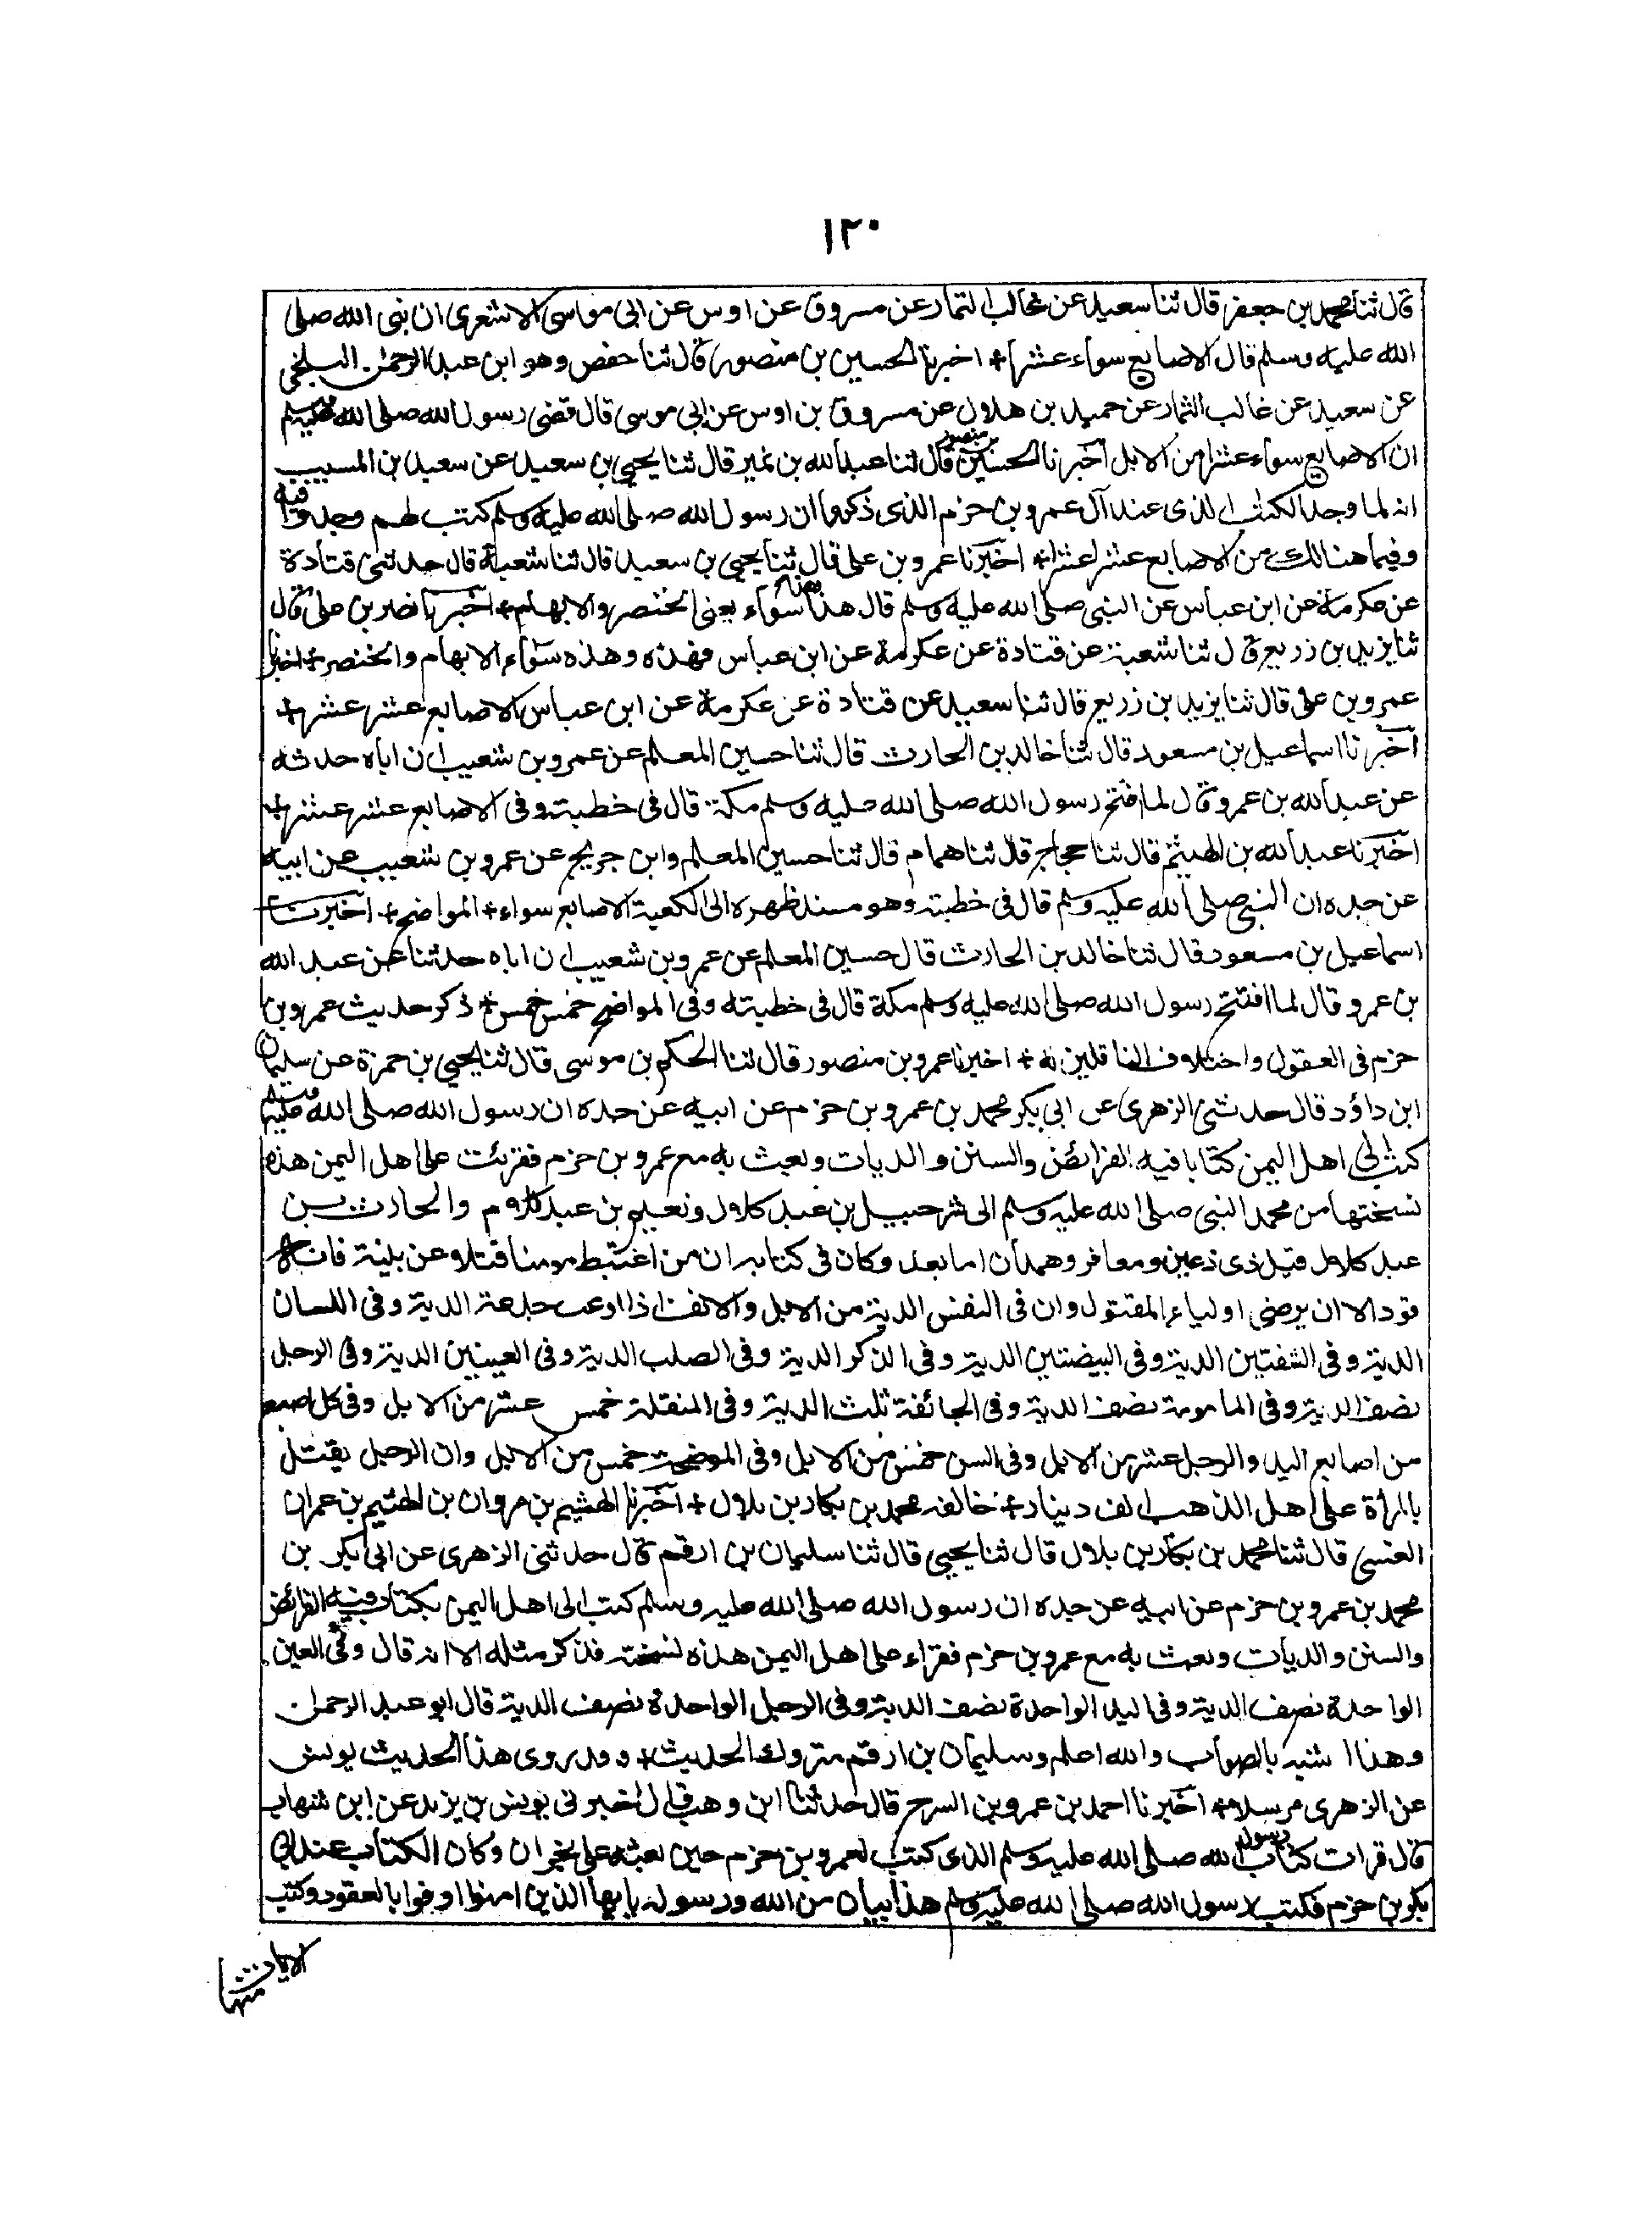 ١٢٠
قال ثنا محمد بن جعفر قال ثنا سعيد عن غالب التمار عن مسروق عن اوس عن ابى موسى الاشعرى ان نبى الله صلى
الله عليه وسلم قال الاصابع سواء عشرا + اخبرنا الحسين بن منصور قال ثنا حفص وهو ابن عبد الرحمن البلخى
عن سعيد عن غالب التمار عن حميد بن هلال عن مسروق بن اوس عن ابى موسى قال قضى رسول الله صلى الله عليه وسلم
ان الاصابع سواء عشرا من الابل اخبرنا الحسين بن منصور قال ثنا عبد الله بن نمير قال ثنا يحيى بن سعيد عن سعيد بن المسيب
انه لما وجد الكتاب الذى عند آل عمرو بن حزم الذى ذكروا ان رسول الله صلى الله عليه وسلم كتب لهم وجدوا فيه
وفيما هنالك من الاصابع عشرا عشرا + اخبرنا عمرو بن على قال ثنا يحيى بن سعيد قال ثنا شعبة قال حدثنى قتادة
عن عكرمة عن ابن عباس عن النبى صلى الله عليه وسلم قال هذه وهذه سواء يعنى الخنصر والابهام + اخبرنا نصر بن على قال
ثنا يزيد بن زريع قال ثنا شعبة عن قتادة عن عكرمة عن ابن عباس فهذه وهذه سواء الابهام والخنصر + اخبرنا
عمرو بن على قال ثنا يزيد بن زريع قال ثنا سعيد عن قتادة عن عكرمة عن ابن عباس الاصابع عشر عشر +
اخبرنا اسماعيل بن مسعود قال ثنا خالد بن الحارث قال ثنا حسين المعلم عن عمرو بن شعيب ان اباه حدثه
عن عبد الله بن عمرو قال لما افتتح رسول الله صلى الله عليه وسلم مكة قال فى خطبته وفى الاصابع عشر عشر +
اخبرنا عبد الله بن الهيثم قال ثنا حجاج قال ثنا همام قال ثنا حسين المعلم وابن جريج عن عمرو بن شعيب عن ابيه
عن جده ان النبى صلى الله عليه وسلم قال فى خطبته وهو مسند ظهره الى الكعبة الاصابع سواء + المواضح + اخبرنا
اسماعيل بن مسعود قال ثنا خالد بن الحارث قال حسين المعلم عن عمرو بن شعيب ان اباه حدثنا عن عبد الله
بن عمرو قال لما افتتح رسول الله صلى الله عليه وسلم مكة قال فى خطبته وفى المواضح خمس خمس + ذكر حديث عمرو بن
حزم فى العقول واختلاف الناقلين له + اخبرنا عمرو بن منصور قال ثنا الحكم بن موسى قال ثنا يحيى بن حمزة عن سليمان
ابن داؤد قال حدثنى الزهرى عن ابى بكر محمد بن عمرو بن حزم عن ابيه عن جده ان رسول الله صلى الله عليه وسلم
كتب الى اهل اليمن كتابا فيه الفرائض والسنن والديات وبعث به مع عمرو بن حزم فقرئت على اهل اليمن هذه
نسختها من محمد النبى صلى الله عليه وسلم الى شرحبيل بن عبد كلال ونعيم بن عبد كلام والحارث بن
عبد كلال قيل ذى ذعين ومعافر وهمدان اما بعد وكان فى كتابه ان من اغتبط مومنا قتلا عن بينة فانه
قود الا ان يرضى اولياء المقتول وان فى النفس الدية من الابل والانف اذا اوعب جدعة الدية وفى اللسان
الدية وفى الشفتين الدية وفى البيضتين الدية وفى الذكر الدية وفى الصلب الدية وفى العينين الدية وفى الرجل
نصف الدية وفى المامومة نصف الدية وفى الجائفة ثلث الدية وفى المنقلة خمس عشر من الابل وفى كل اصبع
من اصابع اليد والرجل عشر من الابل وفى السن خمس من الابل وفى الموضحة خمس من الابل وان الرجل يقتل
بالمرأة على اهل الذهب الف دينار + خالفه محمد بن بكار بن بلال + اخبرنا الهشيم بن مروان بن الهثيم بن عمران
العنسى قال ثنا محمد بن بكار بن بلال قال ثنا يحيى قال ثنا سليمان بن ارقم قال حدثنى الزهرى عن ابى بكر بن
محمد بن عمرو بن حزم عن ابيه عن جده ان رسول الله صلى الله عليه وسلم كتب الى اهل اليمن بكتاب فيه الفرائض
والسنن والديات وبعث به مع عمرو بن حزم فقراء على اهل اليمن هذه نسخته فذكر مثله الا انه قال وفى العين
الواحدة نصف الدية وفى اليد الواحدة نصف الدية وفى الرجل الواحدة نصف الدية قال ابو عبد الرحمن
وهذا اشبه بالصواب والله اعلم وسليمان بن ارقم متروك الحديث + وقد روى هذا الحديث يونس
عن الزهرى مرسلا + اخبرنا احمد بن عمرو بن السرح قال حدثنا ابن وهب قال اخبرنى يونس بن يزيد عن ابن شهاب
قال قرات كتاب رسول الله صلى الله عليه وسلم الذى كتب لعمرو بن حزم حين بعثه على نجران وكان الكتاب عند ابى
بكر بن حزم فكتب رسول الله صلى الله عليه وسلم هذا بيان من الله ورسوله يا يها الذين امنوا اوفوا بالعقود وكتب
الايات منها